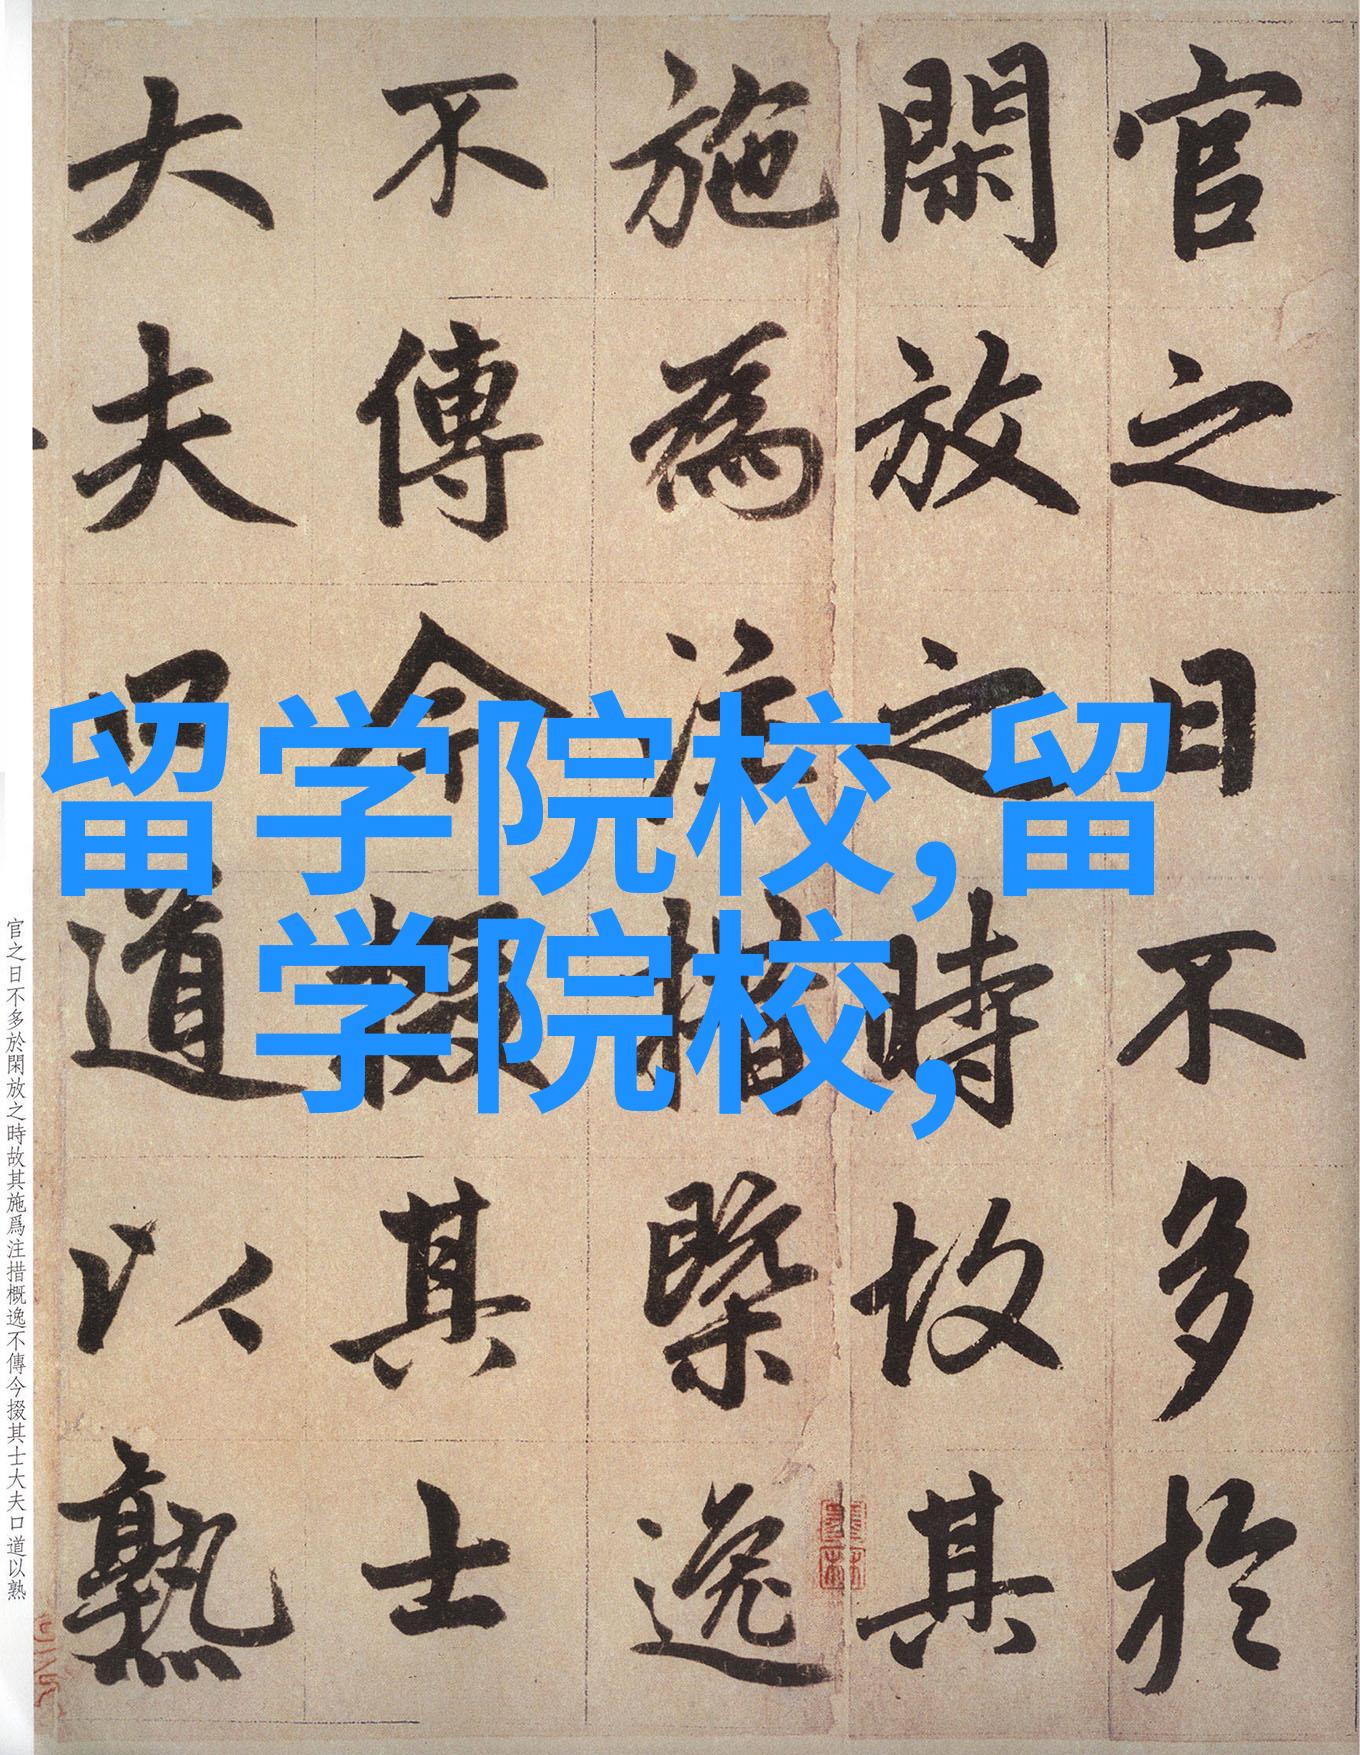 官之日不多於
閑放之時故其
施為注措槩逸
不傳今掇其士
大夫口道以熟
留学院校,留
学院校,
官之日不多於閑放之時故其施爲注措概逸不傳今掇其士大夫口道以熟